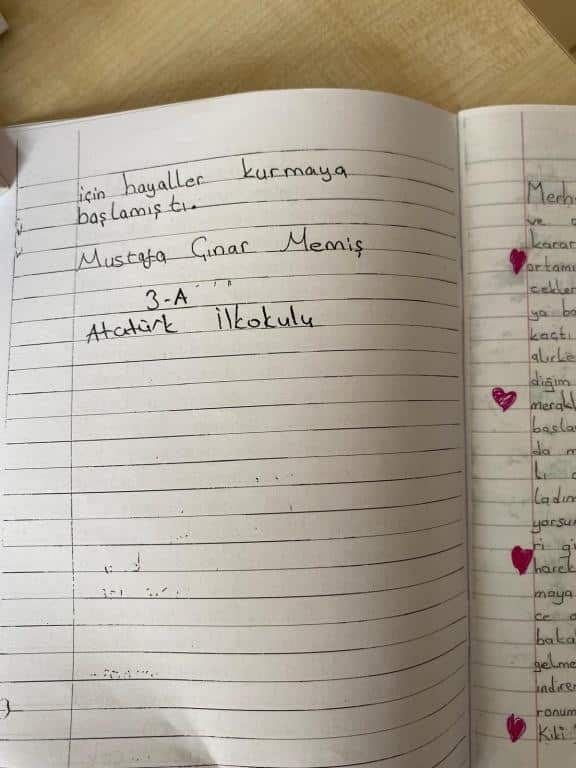 için hayaller kurmaya
başlamıştı.
Mustafa Çınar Memiş
3-A
Atatürk İlkokulu
Merh
ve
karar
ortamı
cekler
ya ba
kaçtı
alırke
diğim
meraklı
başla
da m
ladım
yorsun
ri gi
harek
maya
ce
baka
gelme
indire
ronum
Kiki